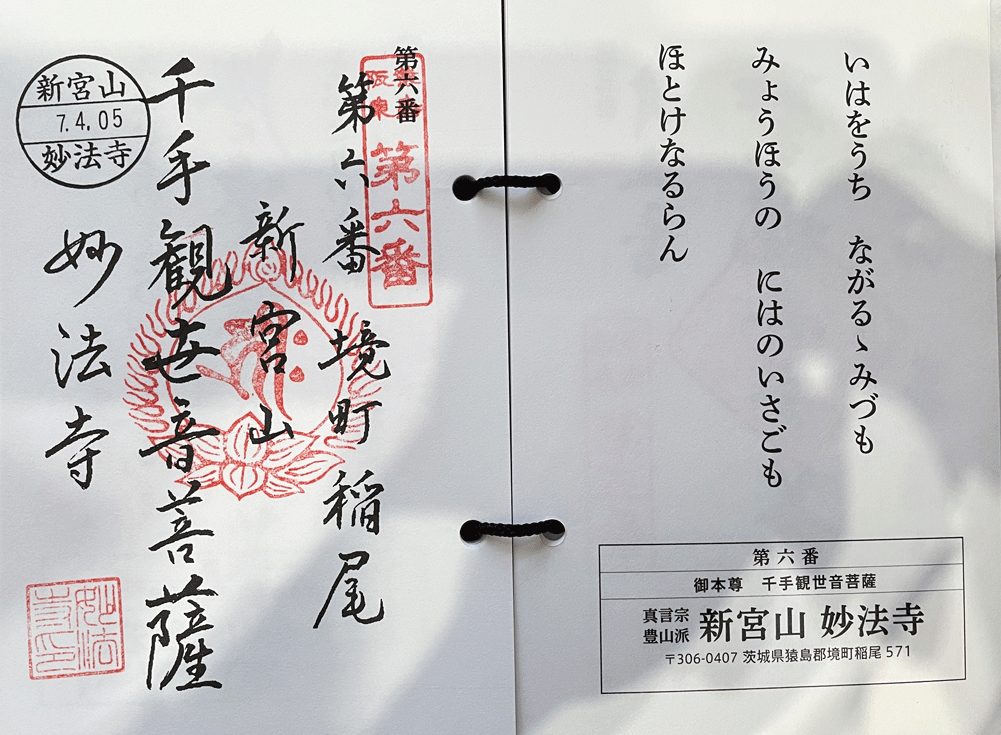 いはをうち ながるゝみづも
みょうほうの にはのいさごも
ほとけなるらん
第六番
御本尊 千手観世音菩薩
真言宗
豊山派
新宮山 妙法寺
〒306-0407 茨城県猿島郡境町稲尾 571
第六番
第六番
第六番 境町 稲尾
新宮山
千手観世音菩薩
妙法寺
新宮山
7.4.05
妙法寺